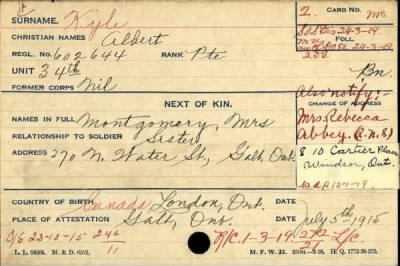 C
SURNAME. Kyle
CHRISTIAN NAMES Albert
REGL. NO. 602644 RANK Pte
UNIT 34th
FORMER CORPS Nil
NEXT OF KIN.
NAMES IN FULL Montgomery, Mrs
RELATIONSHIP TO SOLDIER Sister
ADDRESS 270 N. Water St, Galt Ont.
COUNTRY OF BIRTH Canada London, Ont. DATE
PLACE OF ATTESTATION Galt, Ont. DATE July 5th 1915
O/S 23-10-15 246/11 R/C. 1-3-19. 272/21 L/C
L. L. M. & D. M. F. W. 22. H. Q.
CARD NO.
2.
24-3-19.
FOLL.
24-3-19.
Bn.
Also notify:-
CHANGE OF ADDRESS
Mrs Rebecca
Abbey.
810 Cartier Place
Windsor, Ont.